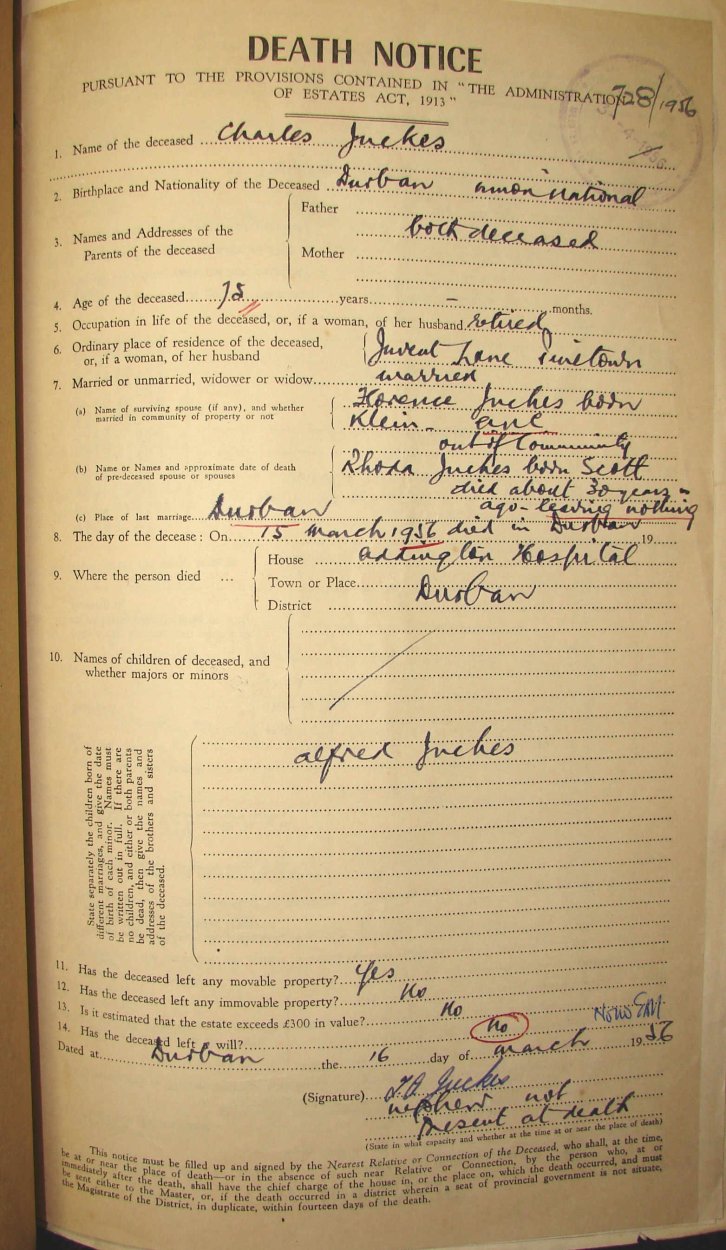 DEATH NOTICE
PURSUANT TO THE PROVISIONS CONTAINED IN "THE ADMINISTRATION
OF ESTATES ACT, 1913"
728/1956
1. Name of the deceased Charles Juckes
2. Birthplace and Nationality of the Deceased Durban Union National
3. Names and Addresses of the Parents of the deceased
Father
both deceased
Mother
4. Age of the deceased 75 years - months.
5. Occupation in life of the deceased, or, if a woman, of her husband retired
6. Ordinary place of residence of the deceased, or, if a woman, of her husband Lane Pinetown
7. Married or unmarried, widower or widow married
(a) Name of surviving spouse (if any), and whether married in community of property or not
Florence Juckes born
Klein - anc
out of Community
(b) Name or Names and approximate date of death of pre-deceased spouse or spouses
Rhoda Juckes born Scott
died about 30 years
ago - leaving nothing
(c) Place of last marriage Durban
8. The day of the decease: On 15 March 1956 died in Durban 19
9. Where the person died ...
House Addington Hospital
Town or Place Durban
District
10. Names of children of deceased, and whether majors or minors
State separately the children born of different marriages, and give the date of birth of each minor. Names must be written out in full. If there are no children, and either or both parents be dead, then give the names and addresses of the brothers and sisters of the deceased.
Alfred Juckes
11. Has the deceased left any movable property? Yes
12. Has the deceased left any immovable property? No
13. Is it estimated that the estate exceeds £300 in value? No
14. Has the deceased left a will? No
Dated at Durban the 16 day of March 1956
(Signature) Juckes
nephew not
present at death
(State in what capacity and whether at the time at or near the place of death)
This notice must be filled up and signed by the Nearest Relative or Connection of the Deceased, who shall, at the time,
be at or near the place of death—or in the absence of such near Relative or Connection, by the person who, at or
immediately after the death, shall have the chief charge of the house in, or the place on, which the death occurred, and must
be sent either to the Master, or, if the death occurred in a district wherein a seat of provincial government is not situate,
the Magistrate of the District, in duplicate, within fourteen days of the death.